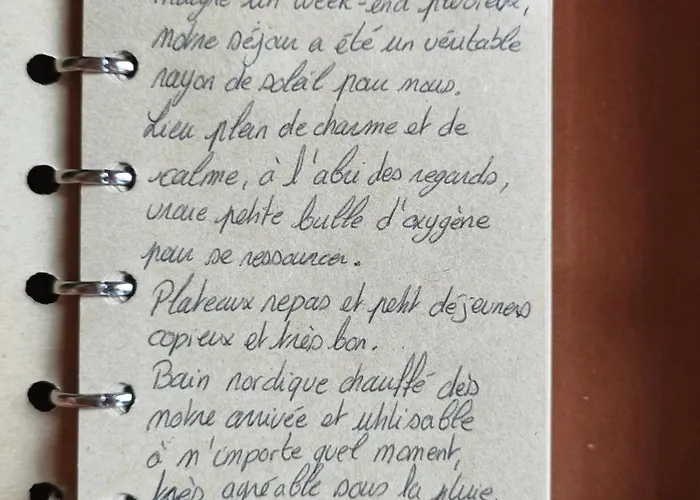 malgré un week-end pluvieux,
notre séjour a été un véritable
rayon de soleil pour nous.
Lieu plein de charme et de
calme, à l'abri des regards,
vraie petite bulle d'oxygène
pour se ressourcer.
Plateaux repas et petit déjeuners
copieux et très bon.
Bain nordique chauffé dès
notre arrivée et utilisable
à n'importe quel moment,
très agréable sous la pluie.